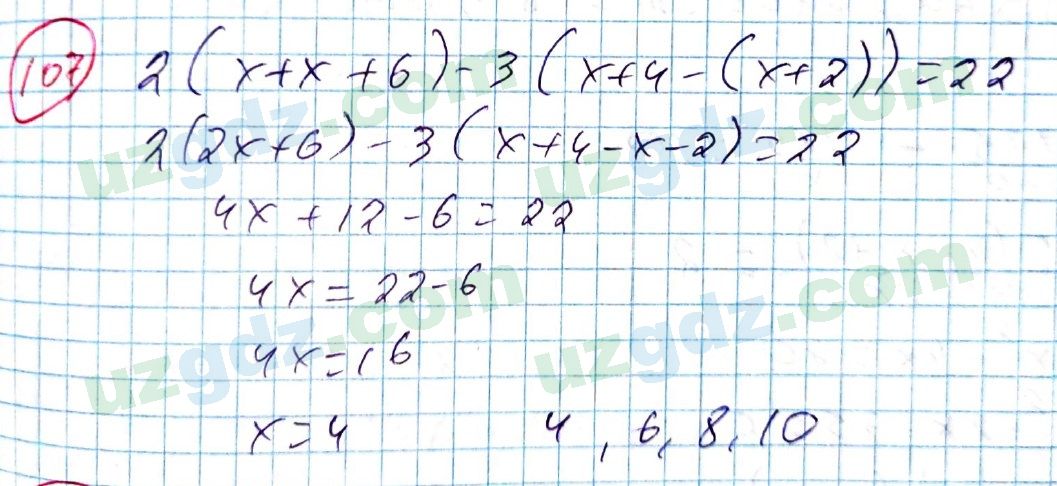 107 2(x+x+6)-3(x+4-(x+2))=22
2(2x+6)-3(x+4-x-2)=22
4x+12-6=22
4x=22-6
4x=16
x=4 4, 6, 8, 10
uzgdz.com uzgdz.com
uzgdz.com uzgdz.com